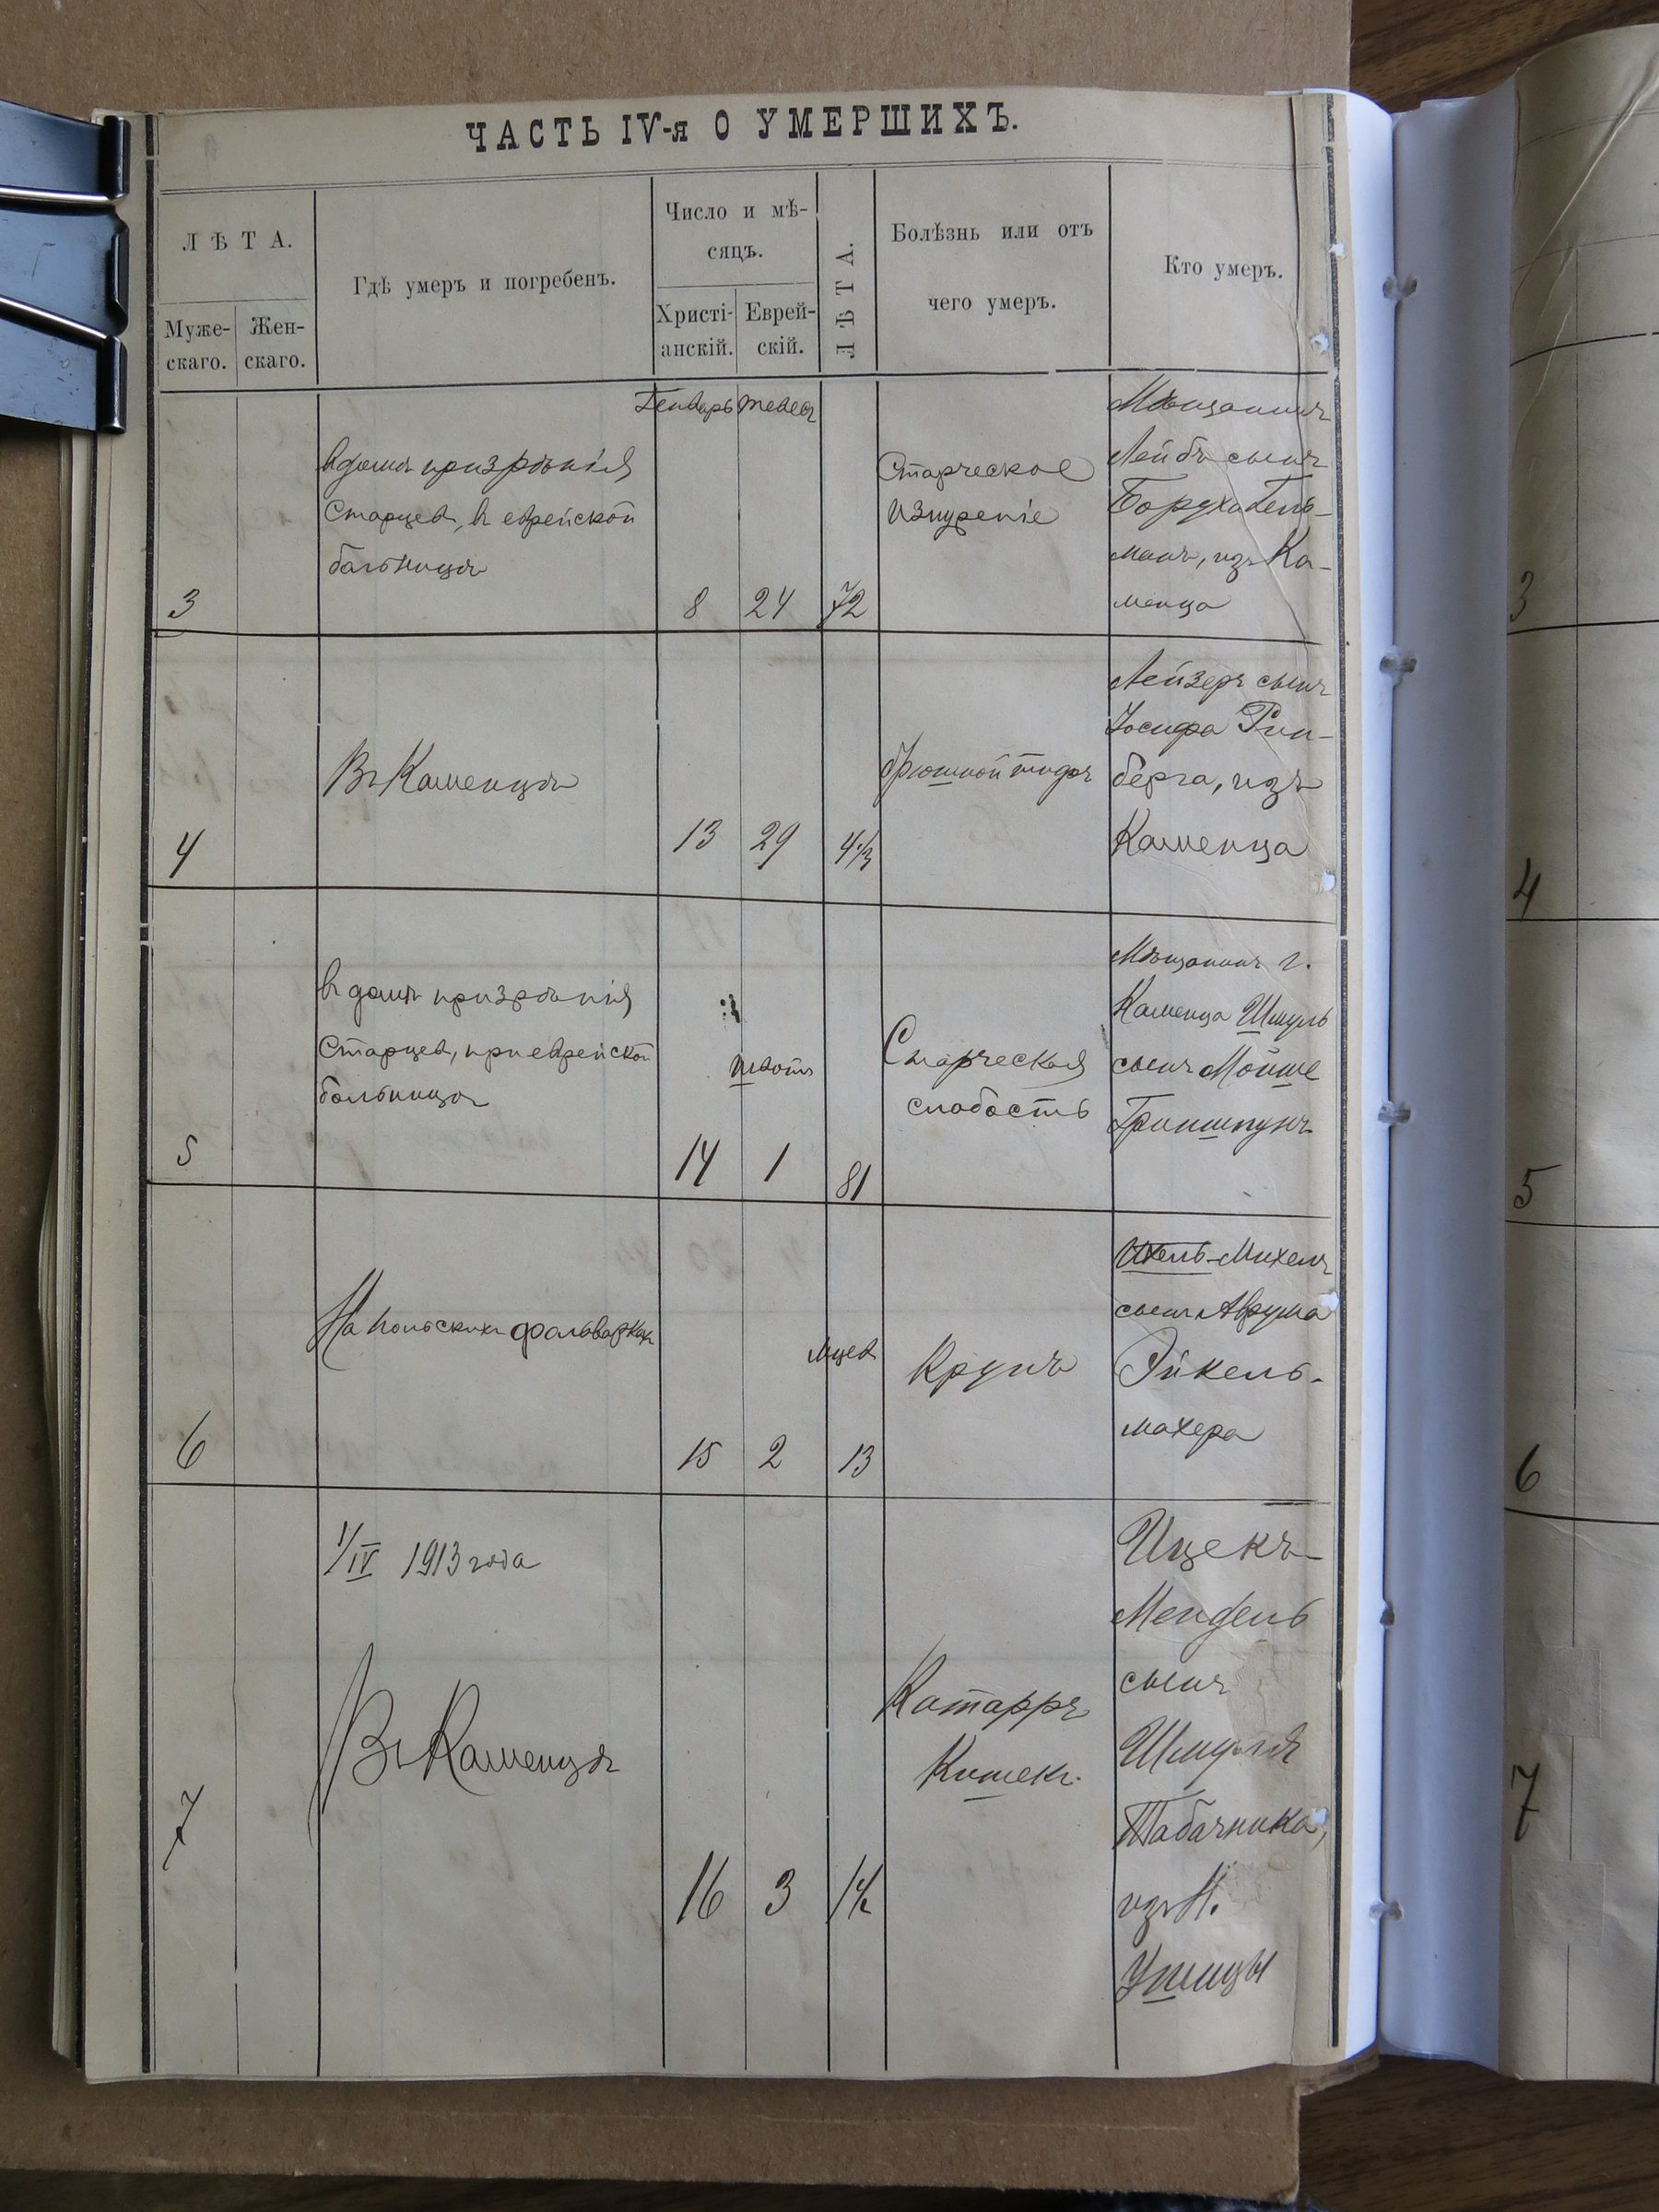 ЧАСТЬ IV-я О УМЕРШИХЪ.
ЛѢТА.
Муже-
скаго.
Жен-
скаго.
Гдѣ умеръ и погребенъ.
Число и мѣ-
сяцъ.
Христі-
анскій.
Еврей-
скій.
ЛѢТА.
Болѣзнь или отъ
чего умеръ.
Кто умеръ.
3
въ домѣ призрѣнія
Старцев, въ еврейской
больницѣ
Генварь
8
тевес
24
72
Старческое
изнуреніе
Мѣщанинъ
Лейбъ сынъ
Боруха Гель-
манъ, изъ Ка-
менца
4
Въ Каменцѣ
13
29
4 1/2
брюшной тифъ
Лейзеръ сынъ
Іосифа Рин-
берга, изъ
Каменца
5
въ домѣ призрѣнія
Старцев, при еврейской
больницѣ
14
шватъ
1
81
Старческая
слабость
Мѣщанинъ г.
Каменца Шмуль
сынъ Мойше
Гриншпунъ
6
На польских фольварках
15
2
мцев
13
Крупъ
Ихель-Михель
сынъ Аврума
Эйкель-
махера
7
1/IV 1913 года
Въ Каменцѣ
16
3
1 1/2
Катарръ
Кишекъ
Ицекъ-
Мендель
сынъ
Шмуля
Табачника,
изъ Н.
Ушицы
3
4
5
6
7